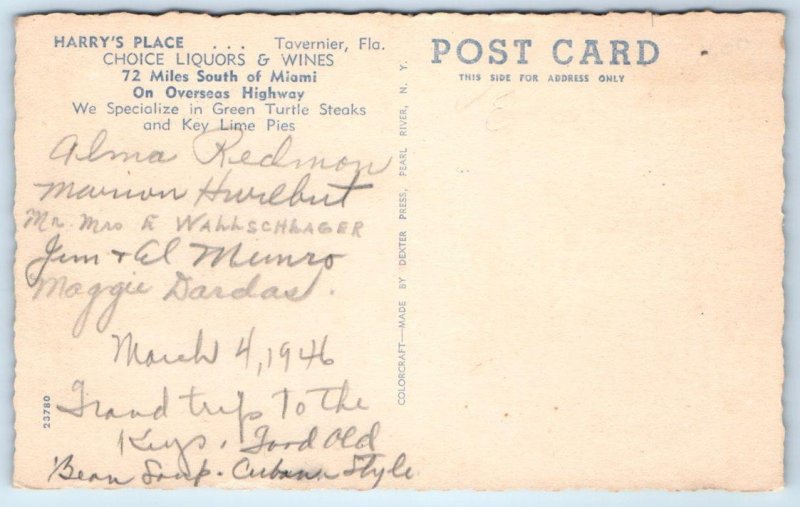 HARRY'S PLACE ... Tavernier, Fla.
CHOICE LIQUORS & WINES
72 Miles South of Miami
On Overseas Highway
We Specialize in Green Turtle Steaks
and Key Lime Pies
Alma Redmon
Marion Hurlbut
Mr. Mrs E WALLSCHLAGER
Jim + El Munro
Maggie Dardas.
March 4, 1946
Grand trip to the
Keys. Good Old
Bean Soup. Cubana Style
23780
COLORCRAFT—MADE BY DEXTER PRESS, PEARL RIVER, N. Y.
POST CARD
THIS SIDE FOR ADDRESS ONLY